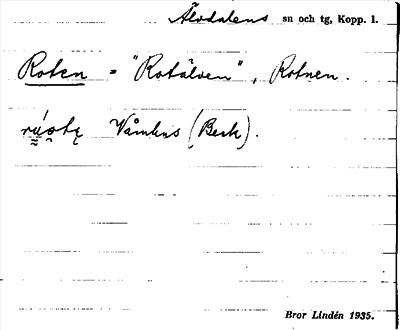 Älvdalens sn och tg, Kopp. l.
Roten = "Rotälven", Rotnen.
Våmhus (Beck).
Bror Lindén 1935.